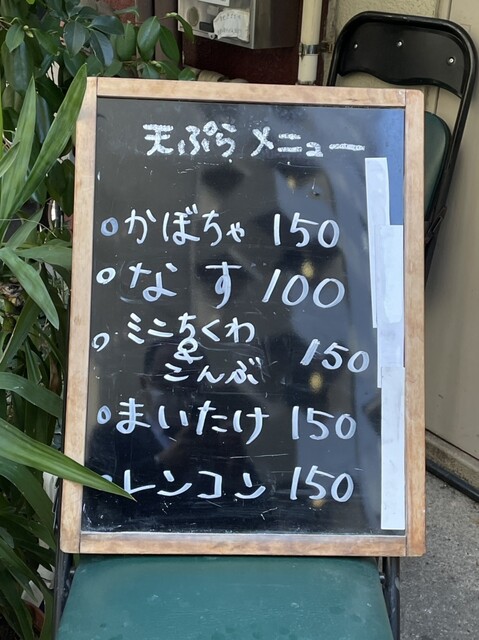 天ぷらメニュー
かぼちゃ 150
なす 100
ミニちくわ
&
こんぶ 150
まいたけ 150
レンコン 150